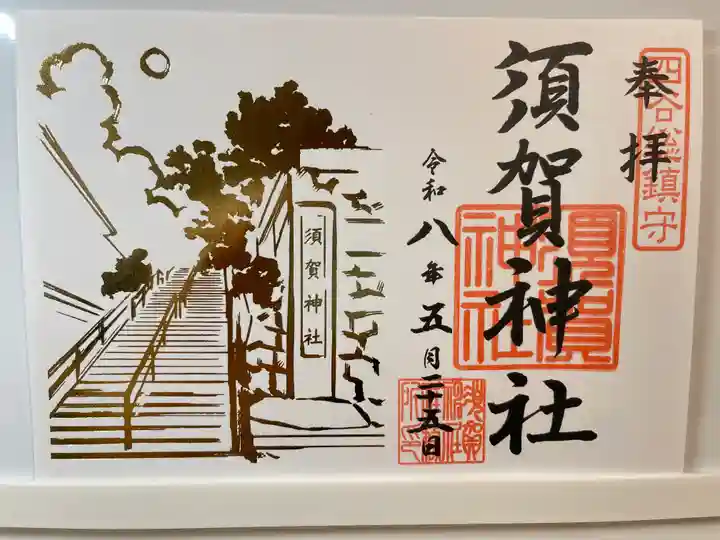 奉拝
四谷総鎮守
須賀神社
須賀神社
令和八年五月二十五日
須賀神社